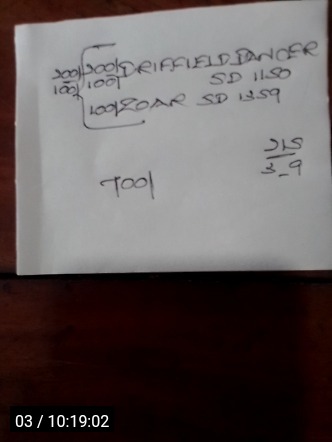 200/ 200/ DRIFFIELD DANCER
100/ 100/ SD 1150
100/ ZOAR SD 1359
215
3_9
700/
03 / 10:19:02